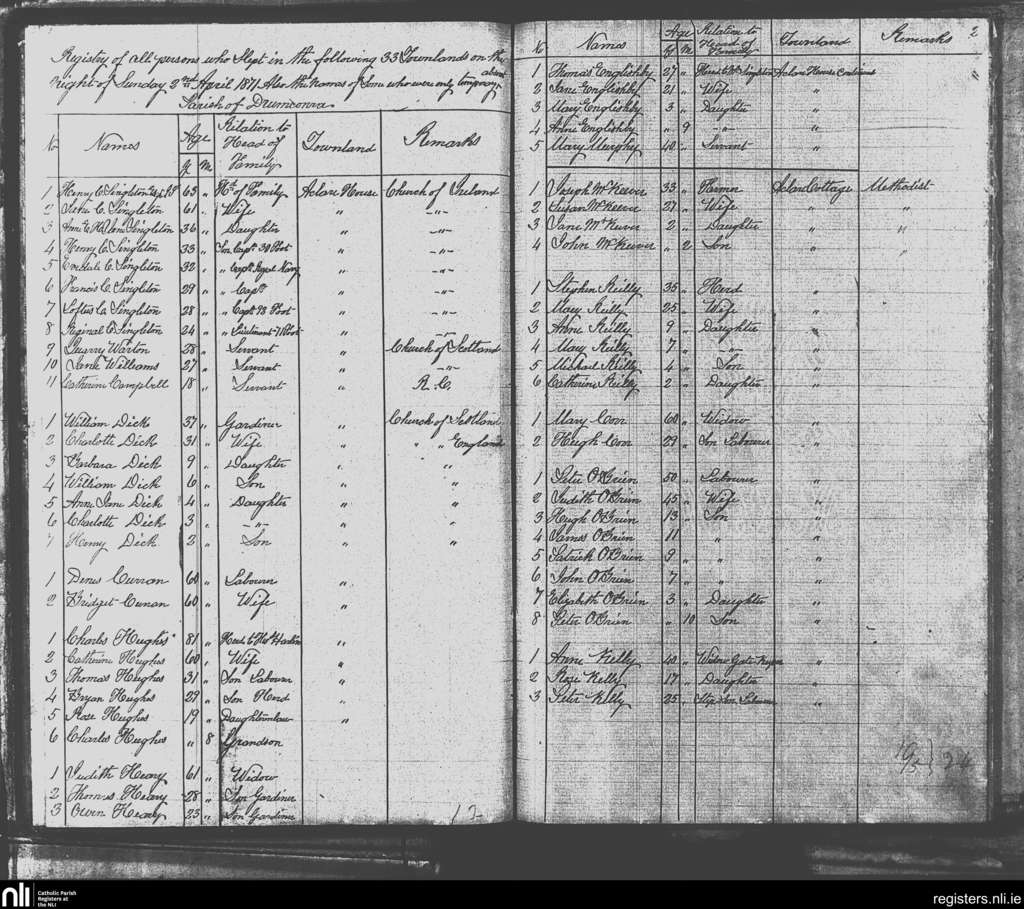 Registry of all persons who Slept in the following 33 Townlands on the
night of Sunday 2nd April 1871 Also the names of Some who were only temporary absent
Parish of Drumconra
No Names Age Y M Relation to Head of Family Townland Remarks
1 Henry C. Singleton Esq J.P 65 " Hd of Family Aclare House Church of Ireland
2 C. Singleton 61 " Wife " - " -
3 Singleton 36 " Daughter " - " -
4 Henry C. Singleton 33 " Son Capt 30 Foot " - " -
5 C. Singleton 32 " " Capt Royal Navy " - " -
6 Francis C. Singleton 29 " " Capt " - " -
7 Loftus C. Singleton 28 " " Capt 98 Foot " - " -
8 Reginal C Singleton 24 " " Lieutenant 71 Foot " - " -
9 Warton 28 " Servant " Church of Scotland
10 Williams 27 " Servant " - " -
11 Catherine Campbell 18 " Servant " R. C.
1 William Dick 37 " Gardiner " Church of Scotland
2 Charlotte Dick 31 " Wife " " " England
3 Barbara Dick 9 " Daughter " "
4 William Dick 6 " Son " "
5 Anne Jane Dick 4 " Daughter " "
6 Charlotte Dick 3 " - " - " "
7 Henry Dick 2 " Son " "
1 Denis Curran 60 " Labourer "
2 Bridget Curran 60 " Wife "
1 Charles Hughes 81 " Herd to "
2 Catherine Hughes 60 " Wife "
3 Thomas Hughes 31 " Son Labourer "
4 Bryan Hughes 29 " Son Herd "
5 Rose Hughes 19 " Daughterinlaw "
6 Charles Hughes " 8 Grandson
1 Judith Heary 61 " Widow
2 Thomas Heary 28 " Son Gardiner
3 Owen Heary 23 " Son Gardiner
12
2
No Names Age Y M Relation to Head of Family Townland Remarks
1 Thomas Englishby 27 " Aclare House Continued
2 Jane Englishby 21 " Wife "
3 Mary Englishby 3 " Daughter "
4 Anne Englishby " 9 - " - "
5 Mary Murphy 40 " Servant "
1 Joseph McKeever 33 " Farmer Aclare Cottage Methodist
2 Susan McKeever 27 " Wife " "
3 Jane McKeever 2 " Daughter " "
4 John McKeever " 2 Son "
1 Stephen Reilly 35 " Herd "
2 Mary Reilly 25 " Wife "
3 Anne Reilly 9 " Daughter "
4 Mary Reilly 7 " - " - "
5 Michael Reilly 4 " Son "
6 Catherine Reilly 2 " Daughter "
1 Mary Corr 60 " Widow "
2 Hugh Corr 29 " Son Labourer "
1 Peter O'Brien 50 " Labourer "
2 Judith O'Brien 45 " Wife "
3 Hugh O'Brien 13 " Son "
4 James O'Brien 11 " " "
5 Patrick O'Brien 9 " " "
6 John O'Brien 7 " " "
7 Elizabeth O'Brien 3 " Daughter "
8 Peter O'Brien " 10 Son "
1 Anne Kelly 40 " Widow Gate Keeper "
2 Rose Kelly 17 " Daughter "
3 Peter Kelly 25 " Step Son Labourer "
nli Catholic Parish
Registers at
the NLI
registers.nli.ie